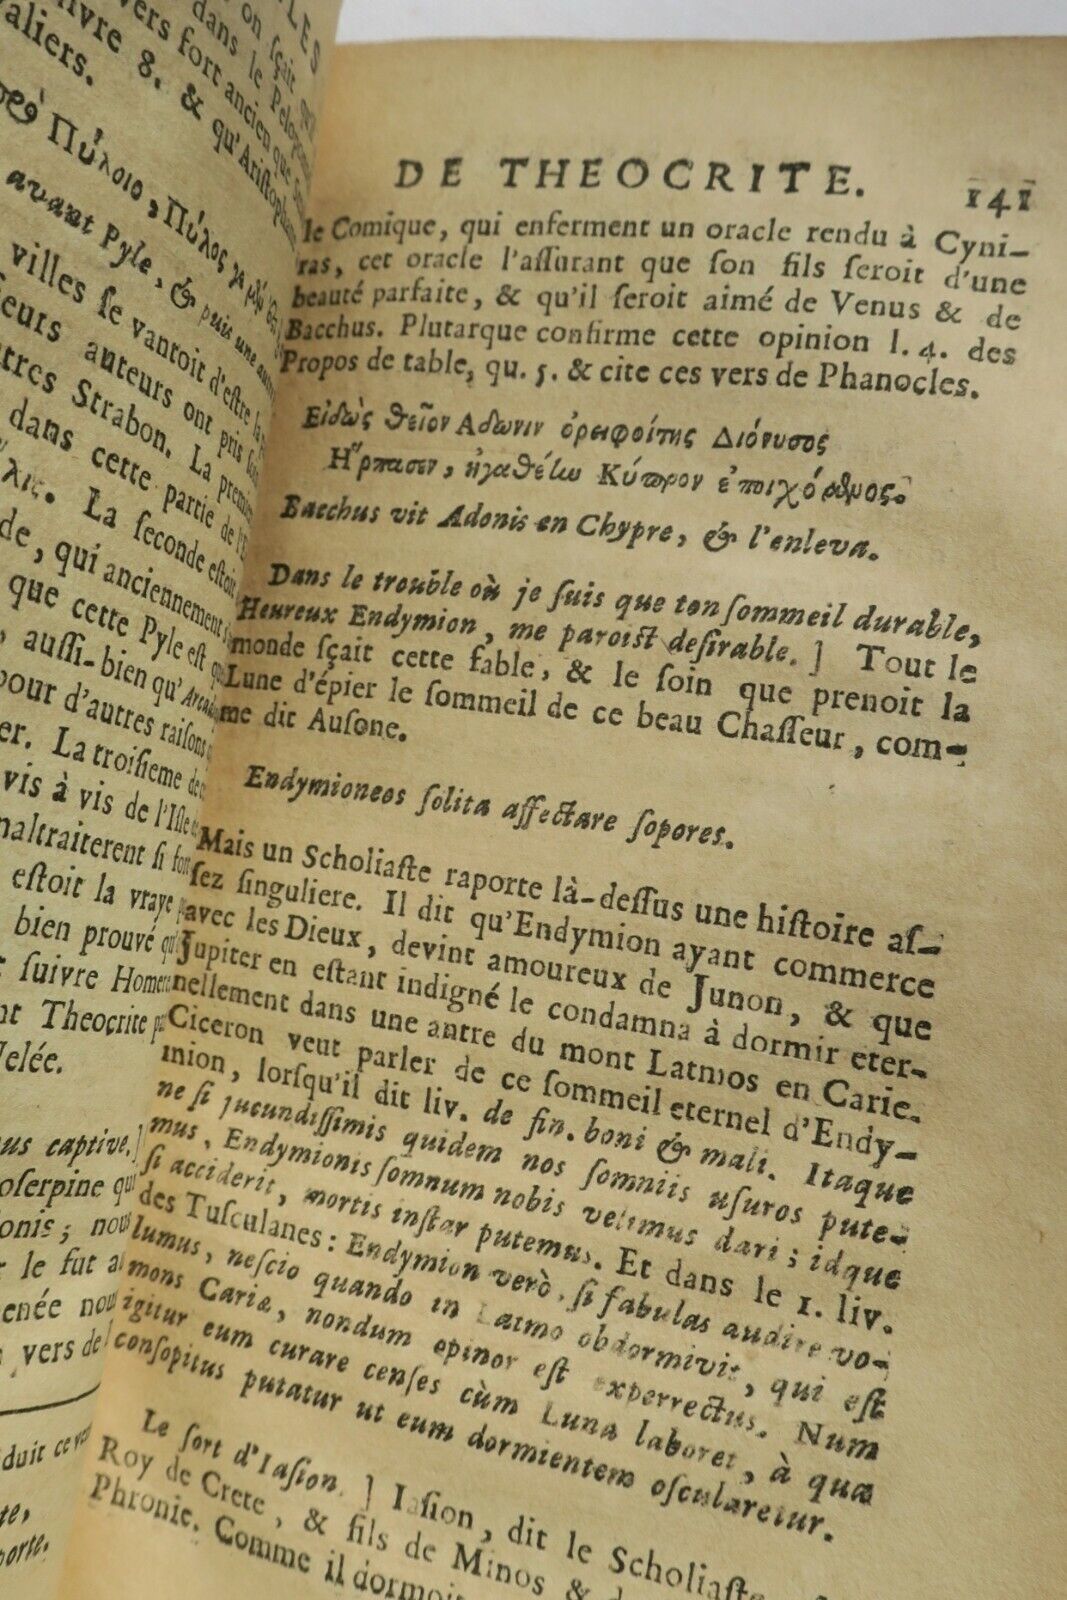 on sçait
dans le Pelopon
vers fort ancien que
livre 8. & qu'Aristophane
valiers.
Πύλοιο, Πύλος
avant Pyle, & puis une autre
villes se vantoit d'estre la
sieurs auteurs ont pris
Strabon. La premiere
dans cette partie de l'E
La seconde estoit
de, qui anciennement
que cette Pyle est
, aussi-bien qu'Arcad
pour d'autres raisons
er. La troisieme de
vis à vis de l'Isle
maltraiterent si fort
estoit la vraye
bien prouvé qu
suivre Homere
nt Theocrite
Nelée.
captive.]
oserpine qui
onis; nou
r le fut a
enée nou
vers de
duit ce vers
te,
porte.
DE THEOCRITE. 141
le Comique, qui enferment un oracle rendu à Cyni-
ras, cet oracle l'assurant que son fils seroit d'une
beauté parfaite, & qu'il seroit aimé de Venus & de
Bacchus. Plutarque confirme cette opinion l. 4. des
Propos de table, qu. 5. & cite ces vers de Phanocles.
Εἰδὼς θεῖον Αδωνιν ὀρειφοίτης Διόνυσος
Ηρπασεν, ἠγαθέην Κύπρον ἐποιχόμενος.
Bacchus vit Adonis en Chypre, & l'enleva.
Dans le trouble où je suis que ton sommeil durable,
Heureux Endymion, me paroist desirable. ] Tout le
monde sçait cette fable, & le soin que prenoit la
Lune d'épier le sommeil de ce beau Chasseur, com-
me dit Ausone.
Endymioneos solita affectare sopores.
Mais un Scholiaste raporte là-dessus une histoire as-
sez singuliere. Il dit qu'Endymion ayant commerce
avec les Dieux, devint amoureux de Junon, & que
Jupiter en estant indigné le condamna à dormir eter-
nellement dans une antre du mont Latmos en Carie.
Ciceron veut parler de ce sommeil eternel d'Endy-
mion, lorsqu'il dit liv. de fin. boni & mali. Itaque
ne si jucundissimis quidem nos somniis usuros pute-
mus, Endymionis somnum nobis velimus dari; idque
si acciderit, mortis instar putemus. Et dans le 1. liv.
des Tusculanes: Endymion verò, si fabulas audire vo-
lumus, nescio quando in Latmo obdormivit, qui est
mons Cariæ, nondum opinor est experrectus. Num
igitur eum curare censes cùm Luna laboret, à qua
consopitus putatur ut eum dormientem oscularetur.
Le sort d'Iasion. ] Iasion, dit le Scholiaste
Roy de Crete, & fils de Minos &
Phronie. Comme il dormoit